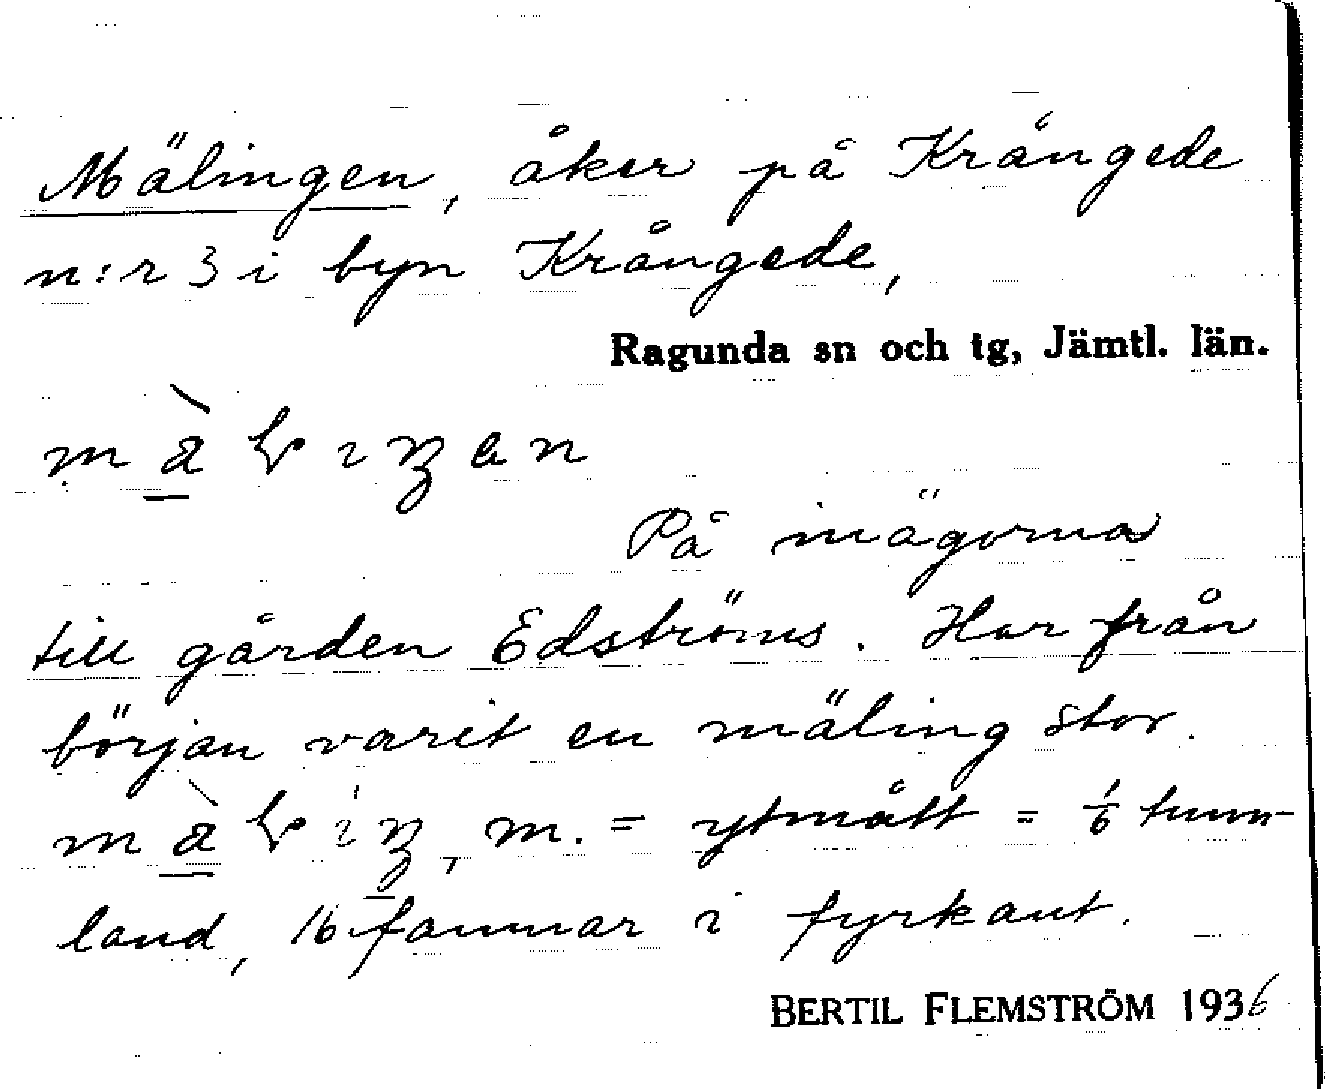 Mälingen, åker på Krångede
n:r 3 i byn Krångede,
Ragunda sn och tg, Jämtl. län.
På inägorna
till gården Edströms. Har från
början varit en mäling stor.
m. = ytmått = 1/6 tunn-
land, 16 famnar i fyrkant.
BERTIL FLEMSTRÖM 1936